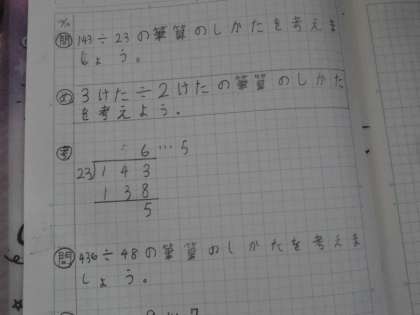 7/10
問 143÷23の筆算のしかたを考えま
しょう。
め 3けた÷2けたの筆算のしかた
を考えよう。
考
6…5
23)143
138
5
問 436÷48の筆算のしかたを考えま
しょう。